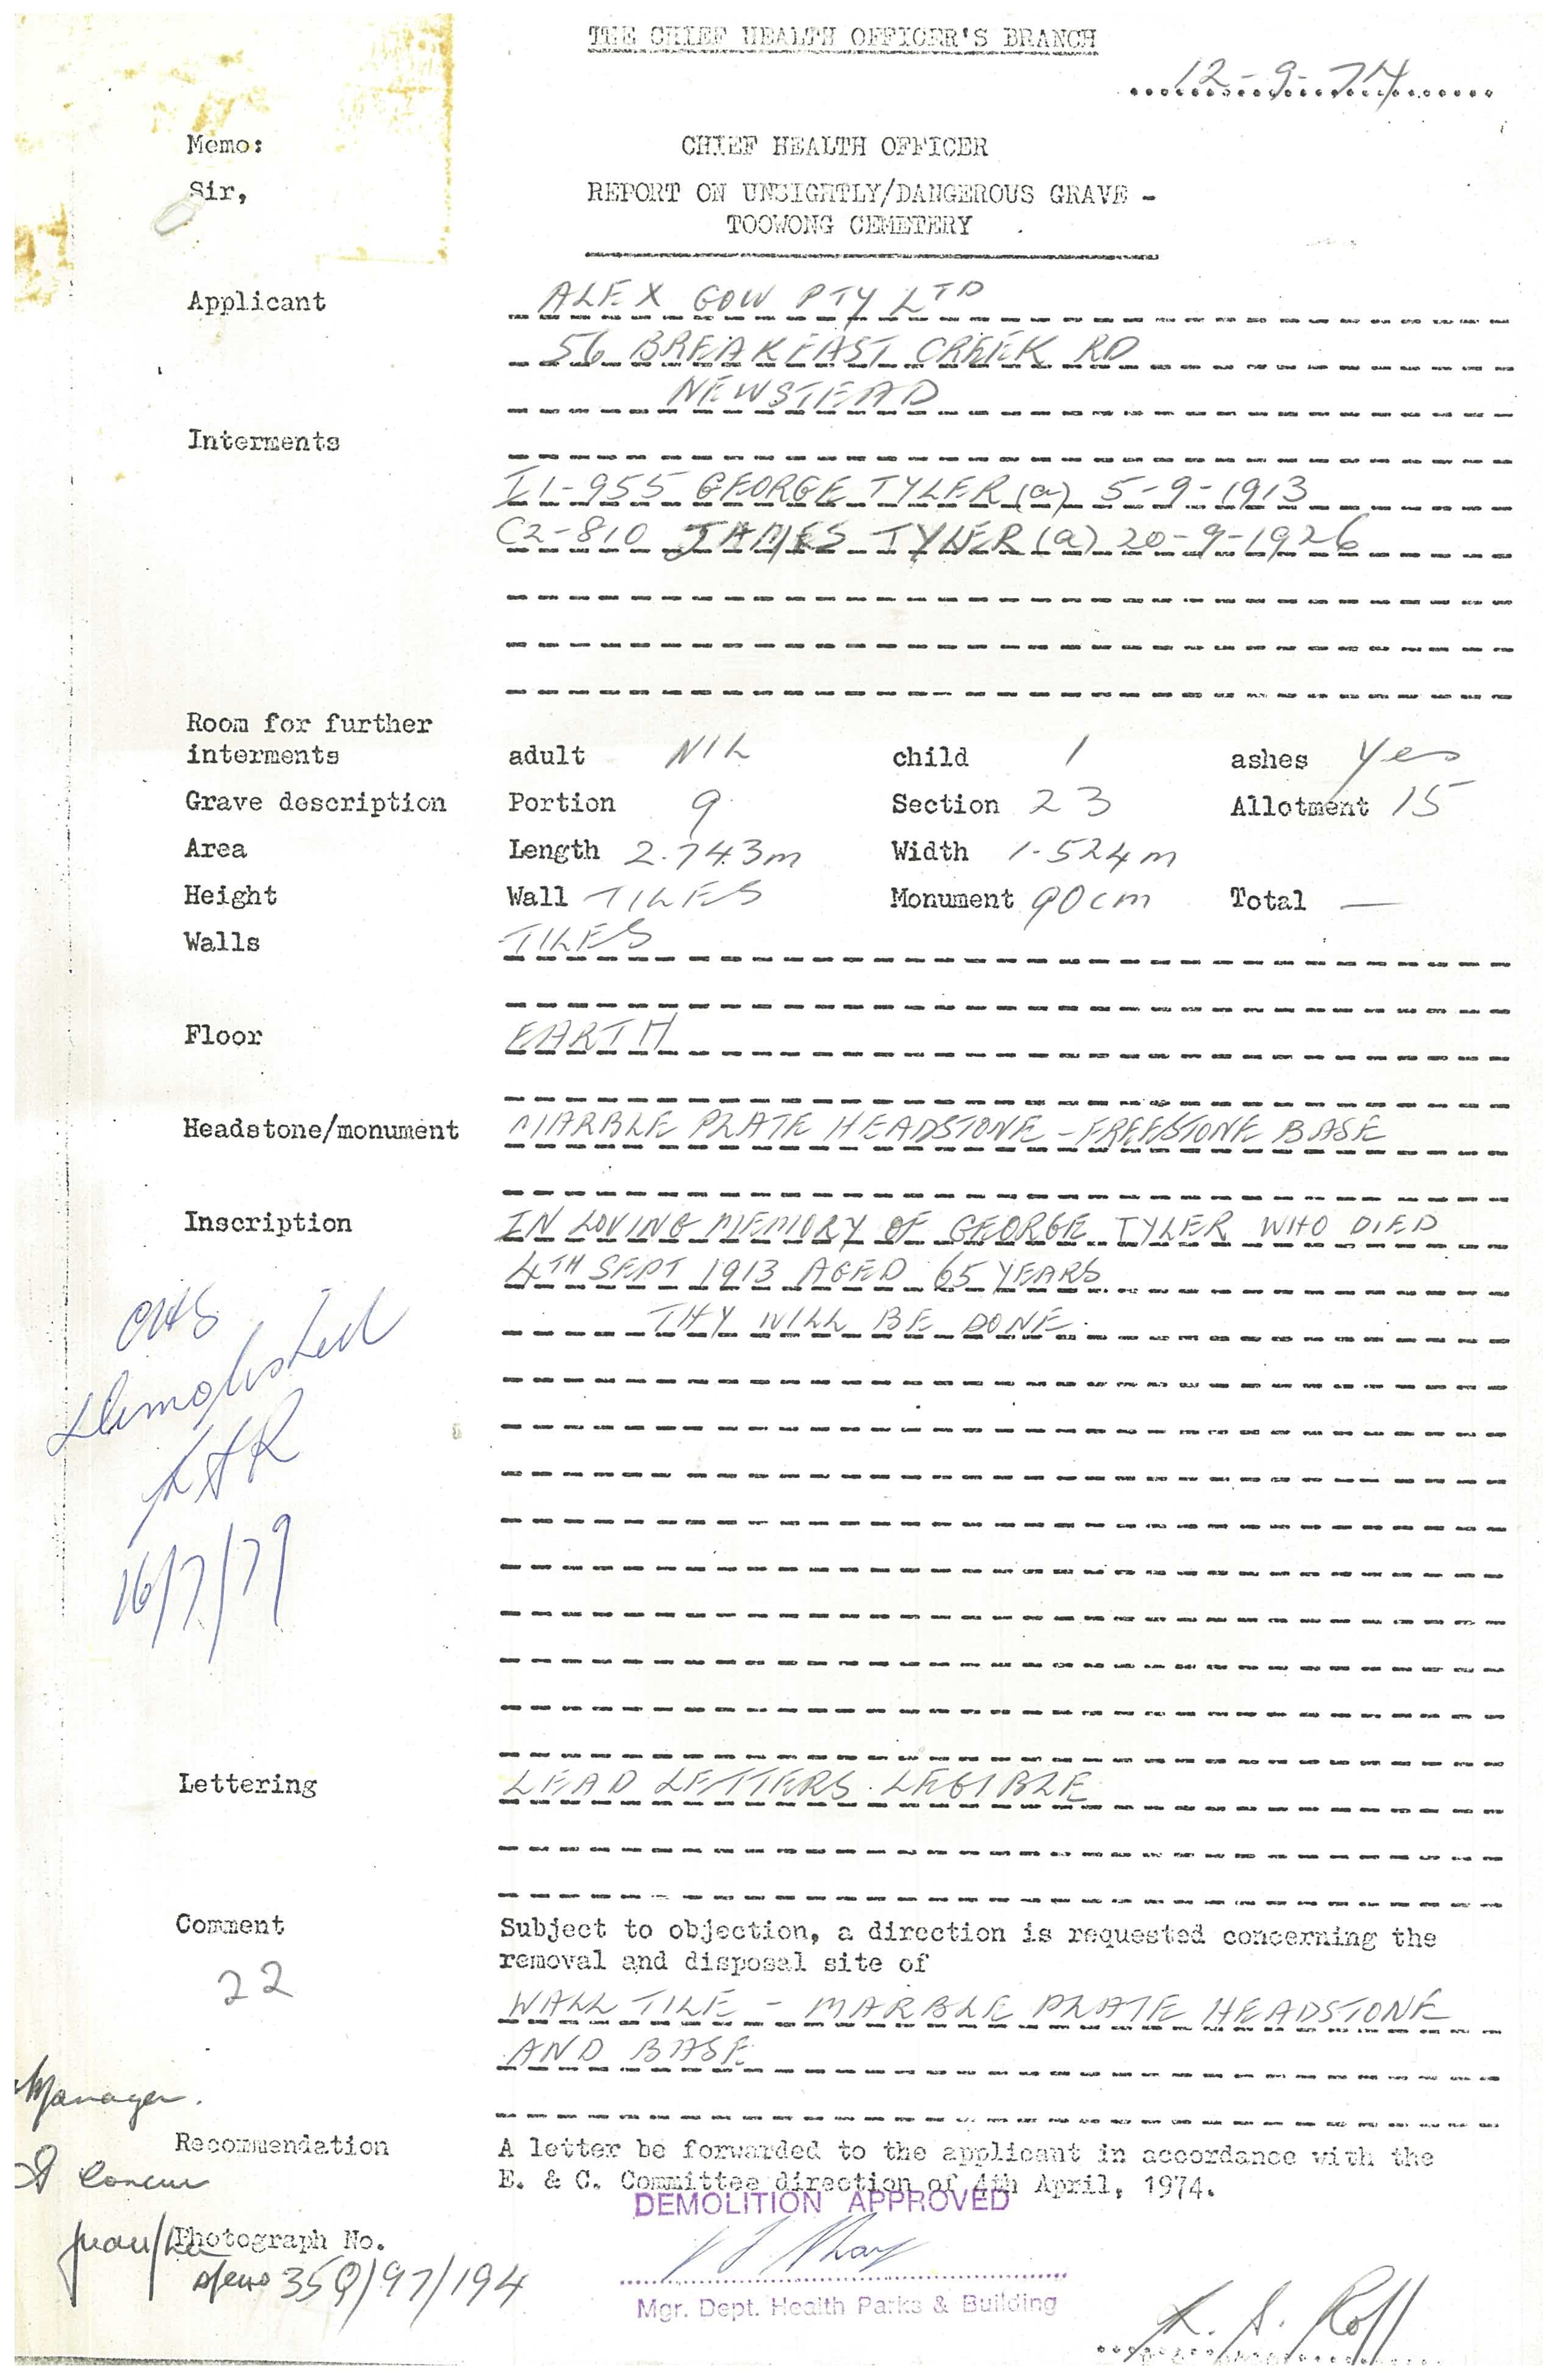 THE CHIEF HEALTH OFFICER'S BRANCH
12-9-74
Memo:
CHIEF HEALTH OFFICER
Sir,
REPORT ON UNSIGHTLY/DANGEROUS GRAVE -
TOOWONG CEMETERY
Applicant ALEX GOW PTY LTD
56 BREAKFAST CREEK RD
NEWSTEAD
Interments
I1-955 GEORGE TYLER (a) 5-9-1913
C2-810 JAMES TYLER (a) 20-9-1926
Room for further
interments adult NIL child 1 ashes Yes
Grave description Portion 9 Section 23 Allotment 15
Area Length 2.743m Width 1.524m
Height Wall TILES Monument 90cm Total —
Walls TILES
Floor EARTH
Headstone/monument MARBLE PLATE HEADSTONE - FREESTONE BASE
Inscription IN LOVING MEMORY OF GEORGE TYLER WHO DIED
4TH SEPT 1913 AGED 65 YEARS
THY WILL BE DONE.
Demolished
KAR
16/7/79
Lettering LEAD LETTERS. LEGIBLE
Comment Subject to objection, a direction is requested concerning the
removal and disposal site of
22
WALL TILE - MARBLE PLATE HEADSTONE
AND BASE
Manager.
Recommendation A letter be forwarded to the applicant in accordance with the
E. & C. Committee direction of 4th April, 1974.
I Concur
DEMOLITION APPROVED
Photograph No.
35Q/97/194
Mgr. Dept. Health Parks & Building
K. A. Roff